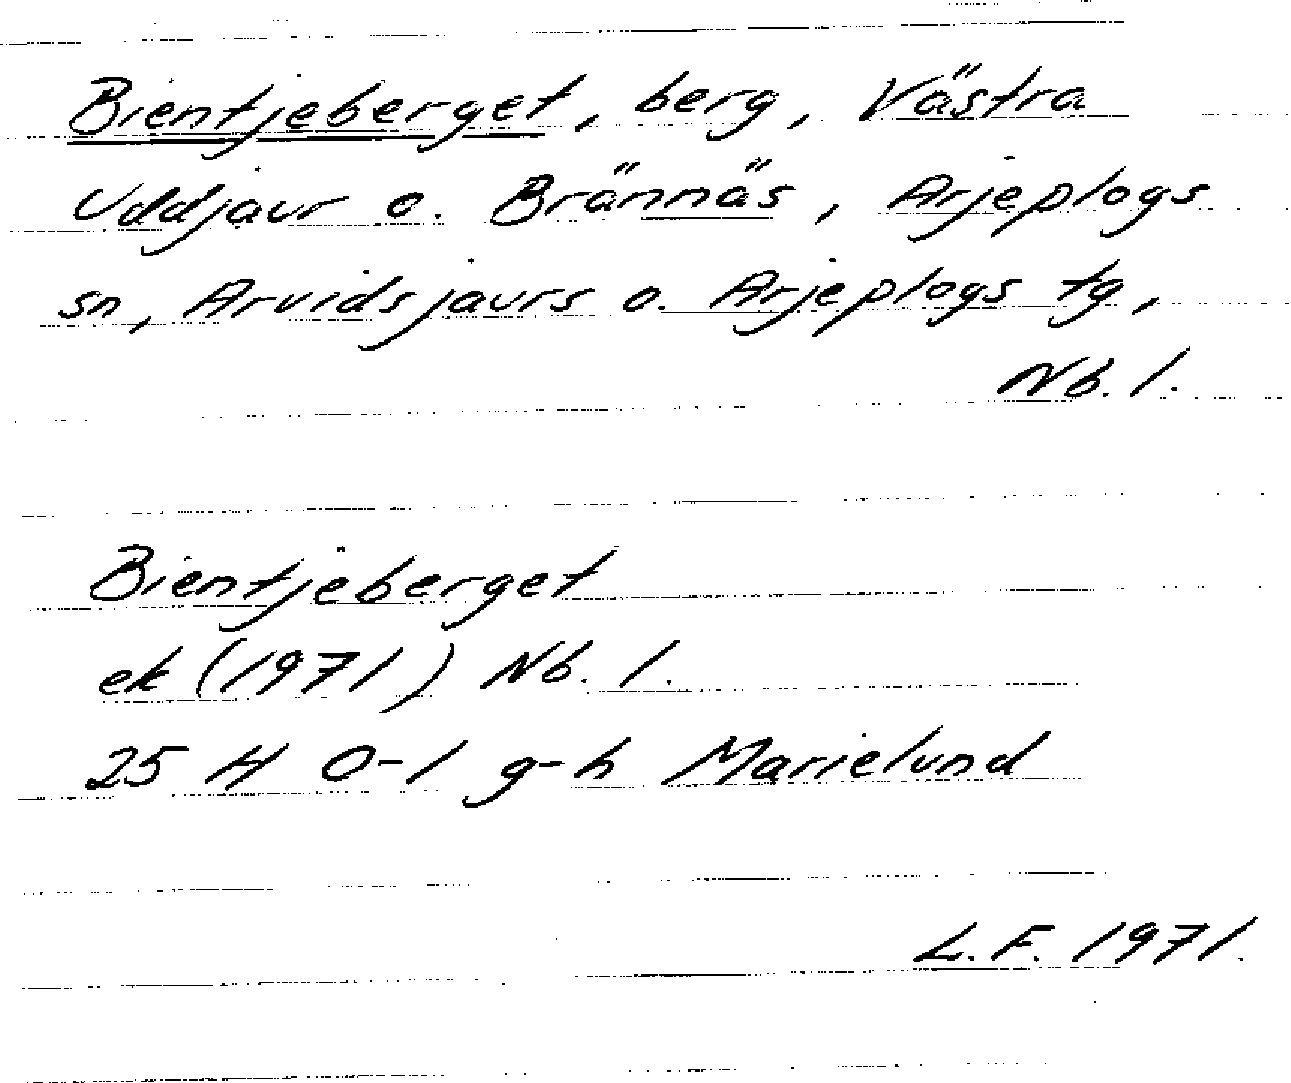 Bientjeberget, berg, Västra
Uddjaur o. Brännäs, Arjeplogs
sn, Arvidsjaurs o. Arjeplogs tg,
Nb. l.
Bientjeberget
ek (1971) Nb. l.
25 H 0-1 g-h Marielund
L.F. 1971.